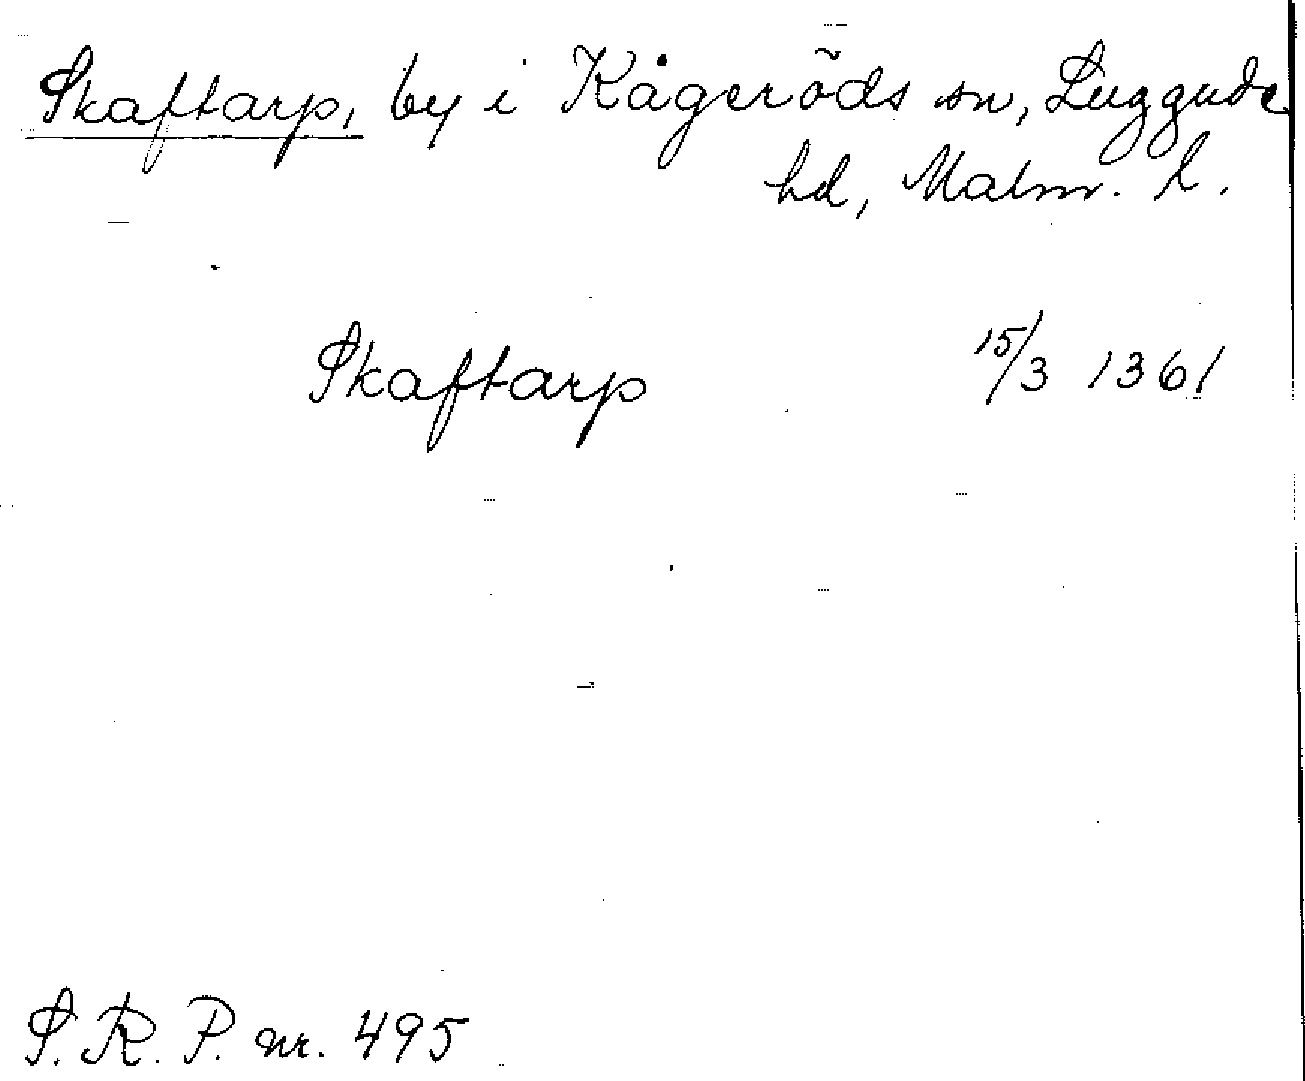 Skaftarp, by i Kågeröds sn, Luggude
hd, Malm. l.
Skaftarp 15/3 1361
S.R.P. nr. 495